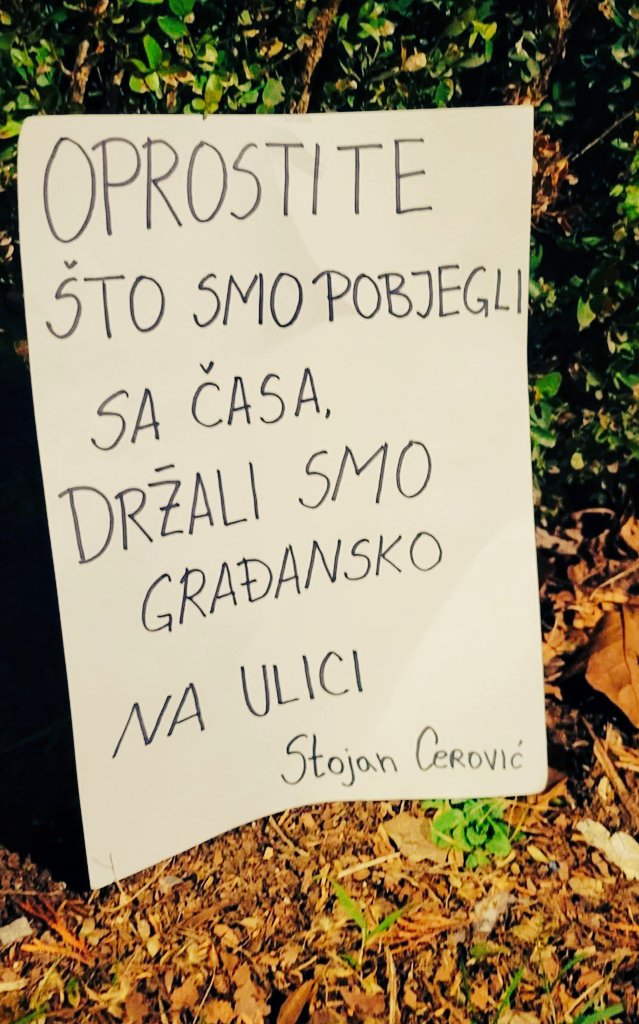 OPROSTITE
ŠTO SMO POBJEGLI
SA ČASA,
DRŽALI SMO
GRAĐANSKO
NA ULICI
Stojan Cerović